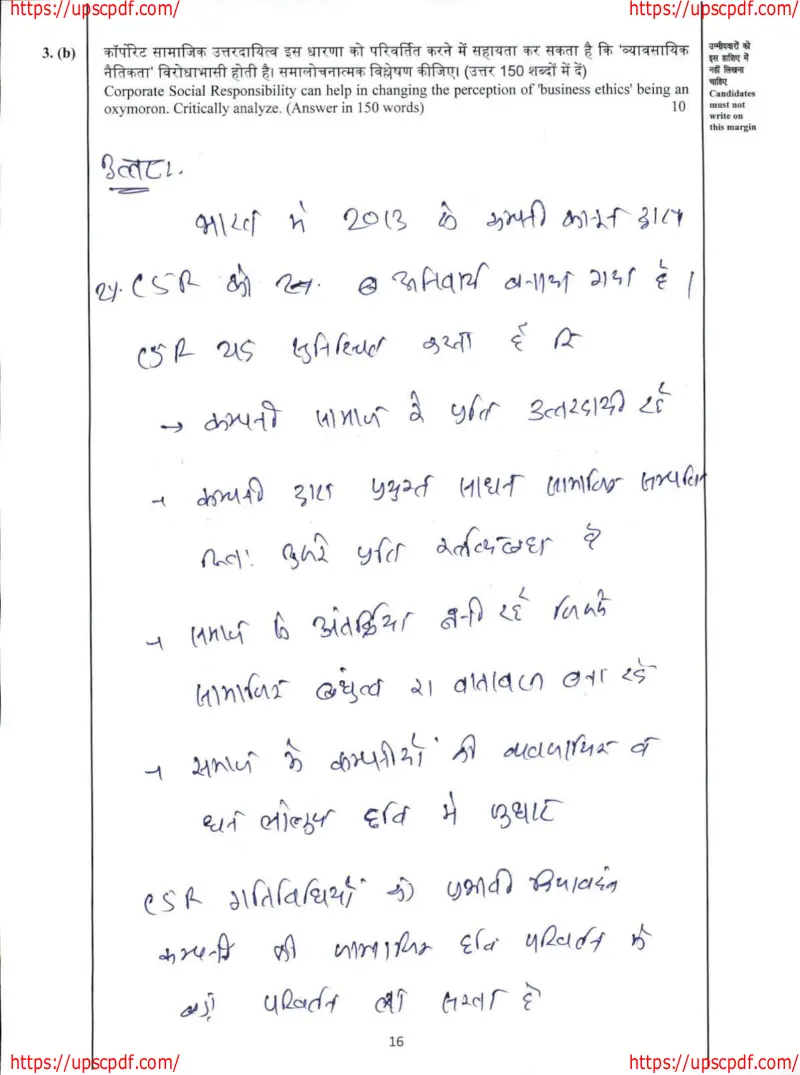 https://upscpdf.com/ https://upscpdf.com/
3. (b) कॉर्पोरेट सामाजिक उत्तरदायित्व इस धारणा को परिवर्तित करने में सहायता कर सकता है कि 'व्यावसायिक
नैतिकता' विरोधाभासी होती है। समालोचनात्मक विश्लेषण कीजिए। (उत्तर 150 शब्दों में दें)
Corporate Social Responsibility can help in changing the perception of 'business ethics' being an
oxymoron. Critically analyze. (Answer in 150 words) 10
उम्मीदवारों को
इस हाशिए में
नहीं लिखना
चाहिए
Candidates
must not
write on
this margin
भारत में 2013 के कम्पनी कानून द्वारा
CSR को अनिवार्य बनाया गया है।
CSR यह सुनिश्चित करता है कि
→ कम्पनी समाज के प्रति उत्तरदायी रहे
→ कम्पनी द्वारा प्रयुक्त साधन सामाजिक सम्पत्ति
प्रति है
→ समाज से अंतर्क्रिया बनी रहे जिससे
सामाजिक बंधुत्व का वातावरण बना रहे
→ समाज में कम्पनीयों की व्यवसायिक व
धन लोलुप छवि में सुधार
CSR गतिविधियों का प्रभावी क्रियान्वयन
कम्पनी की सामाजिक छवि परिवर्तन में
बड़ा परिवर्तन ला सकता है
16
https://upscpdf.com/ https://upscpdf.com/